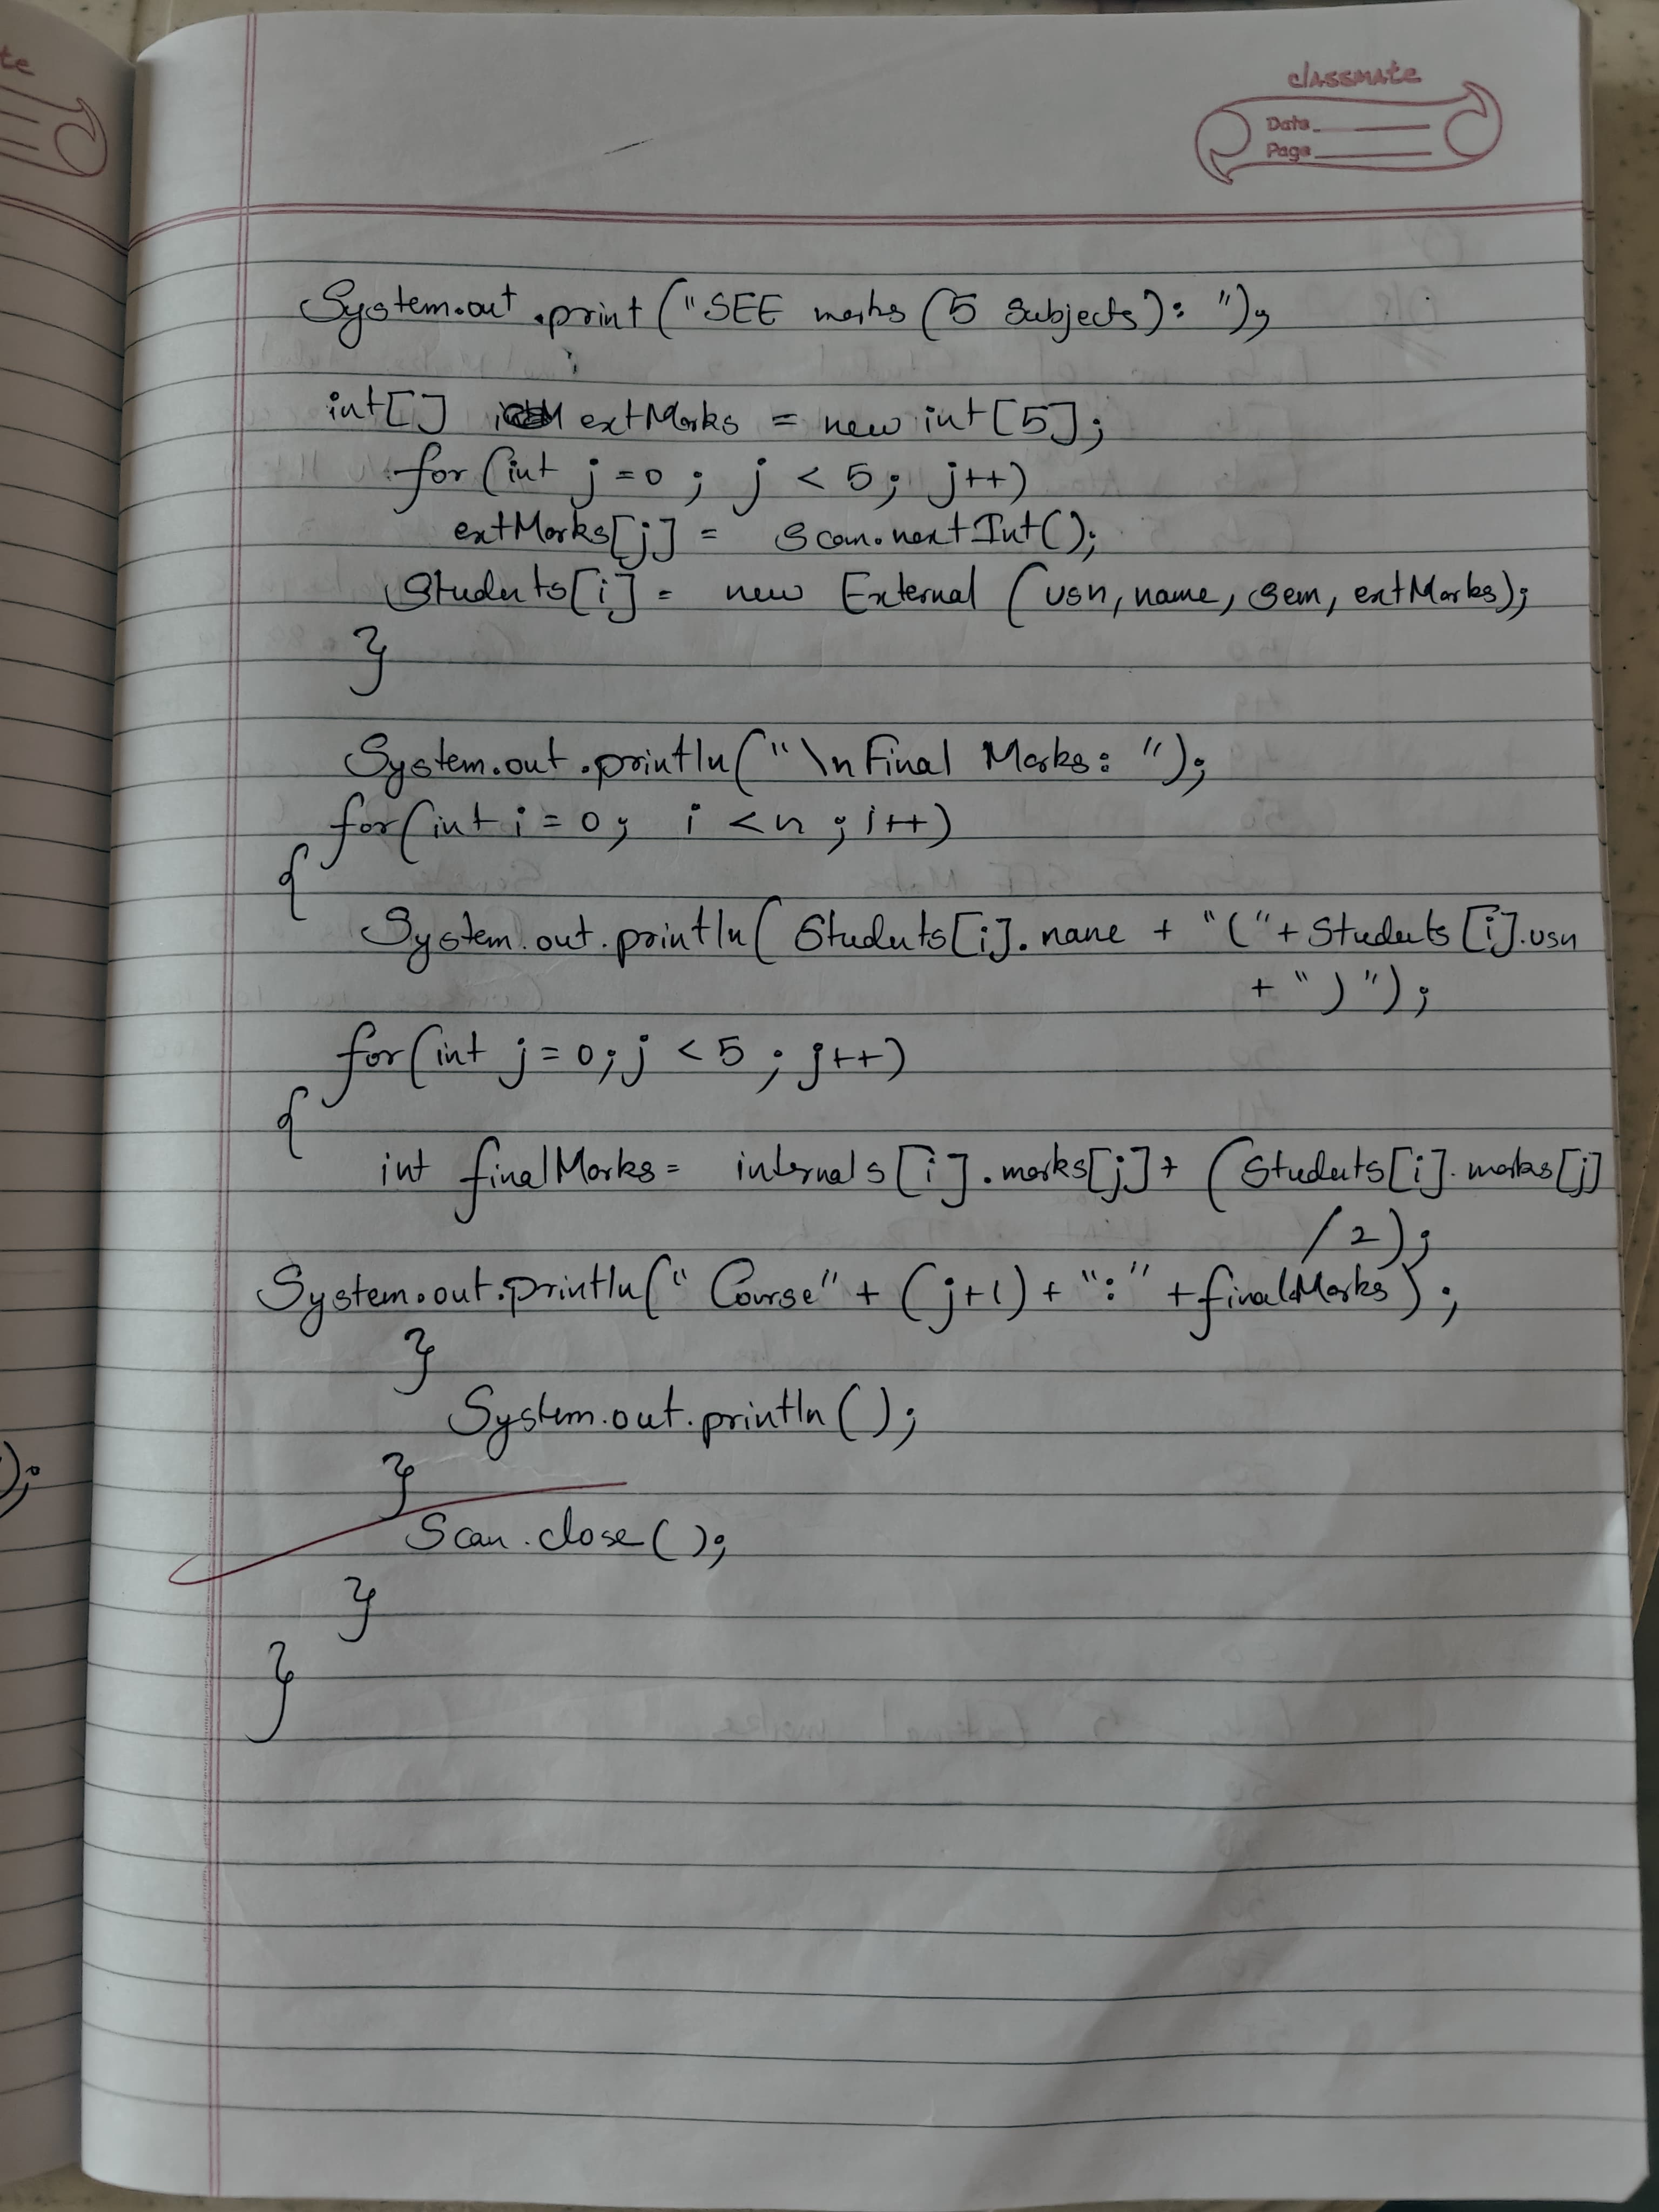 te
classmate
Date
Page
System.out.print("SEE marks (5 Subjects): ");
int[] extMarks = new int[5];
for(int j=0; j < 5; j++)
extMarks[j] = scan.nextInt();
Students[i] = new External (usn, name, sem, extMarks);
}
System.out.println("\nFinal Marks: ");
for(int i=0; i<n; i++)
{
System.out.println(Students[i].name + "(" + Students[i].usn
+ ")");
for(int j=0; j<5; j++)
{
int finalMarks = internals[i].marks[j] + (Students[i].marks[j]
/2);
System.out.println("Course" + (j+1) + ":" + finalMarks);
}
System.out.println();
}
Scan.close();
}
}
);